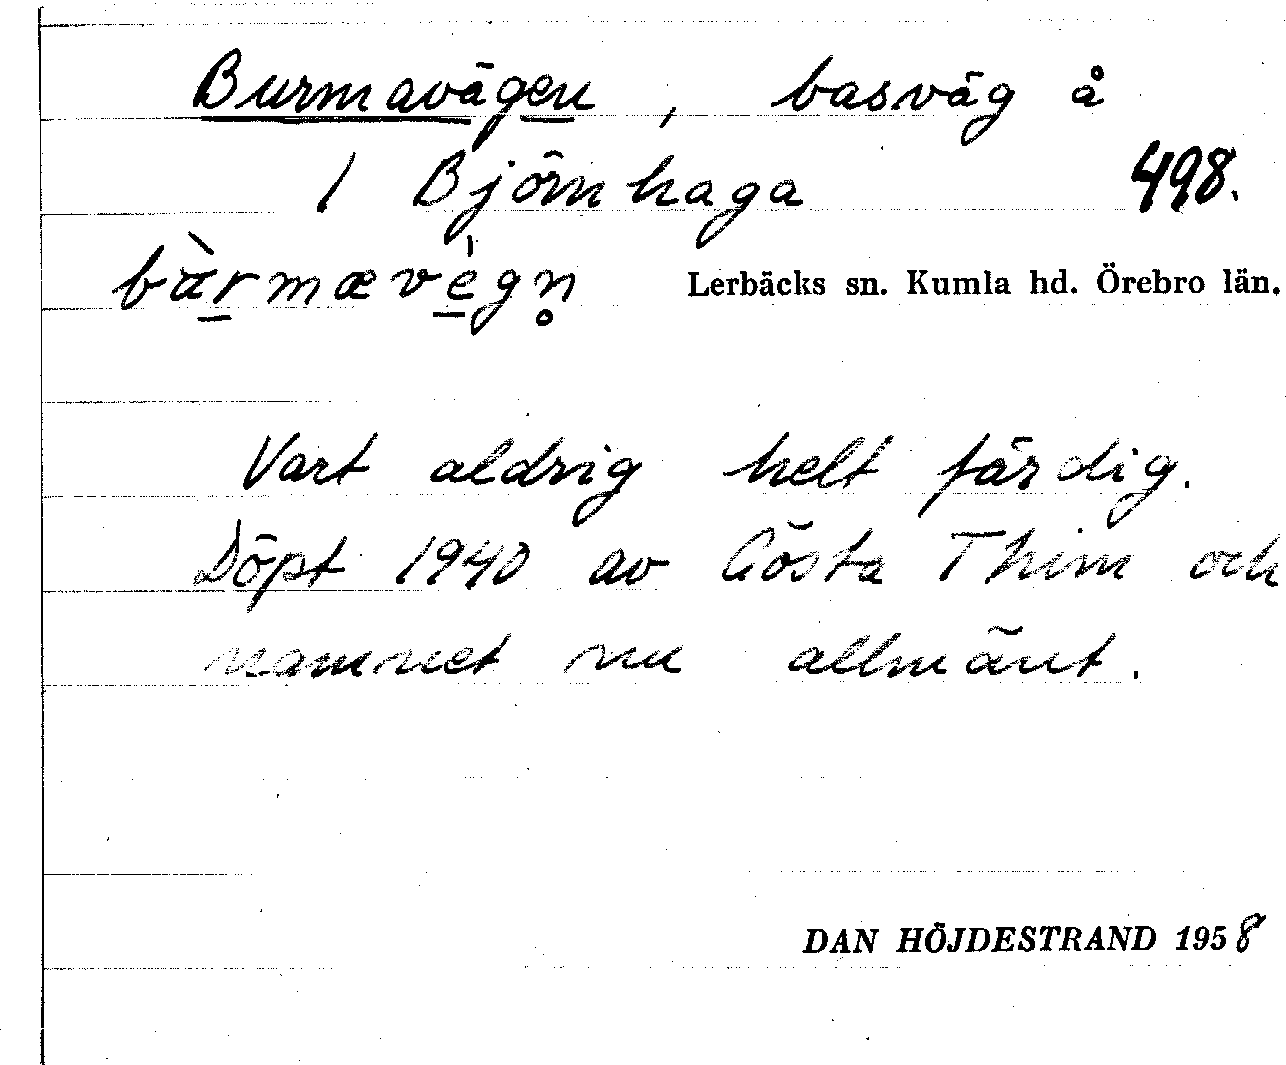 Burmavägen, basväg å
1 Björnhaga 498.
bàrmævégn̥ Lerbäcks sn. Kumla hd. Örebro län.
Vart aldrig helt färdig.
Döpt 1940 av Gösta Thim och
namnet nu allmänt.
DAN HÖJDESTRAND 1958